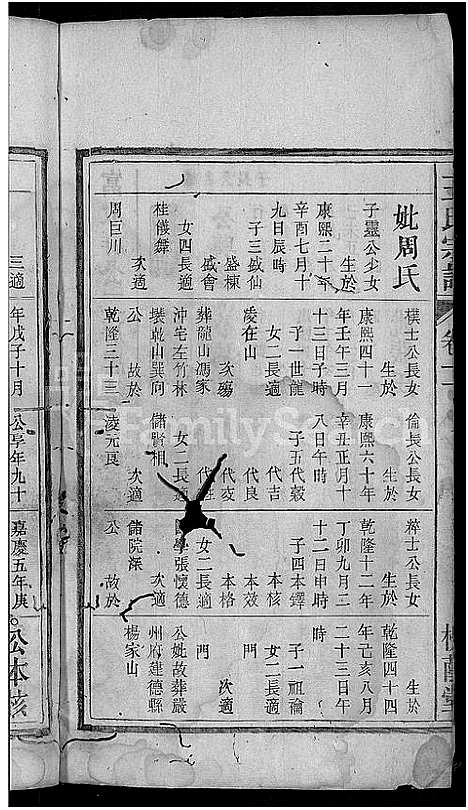 王氏宗譜 卷十
妣周氏
子靈公少女
生於
康熙二十年
辛酉七月十
九日辰時
子三盛仙
盛棟
盛會
女四長適
桂儀舞
次適
周巨川
三適
模士公長女
生於
康熙四十一
年壬午三月
十三日子時
子一世龍
女二長適
凌在山
次殤
葬隴山馮家
沖宅左竹林
裝乾山巽向
公 故於
乾隆三十三
年戊子十月
倫長公長女
生於
康熙六十年
辛丑正月十
八日午時
子五代穀
代吉
代良
代交
代
女二長適
儲賢相
次適
凌元良
公享年九十
粹士公長女
生於
乾隆十二年
丁卯九月二
十二日申時
子四本鐸
本核
本效
本格
女二長適
學張懷德
次適
儲院深
公 故於
嘉慶五年庚
生於
乾隆四十四
年己亥八月
二十三日午
時
子一祖論
女二長適
門
次適
門
公妣故葬嚴
州府建德縣
楊家山
公本核
FamilySearch